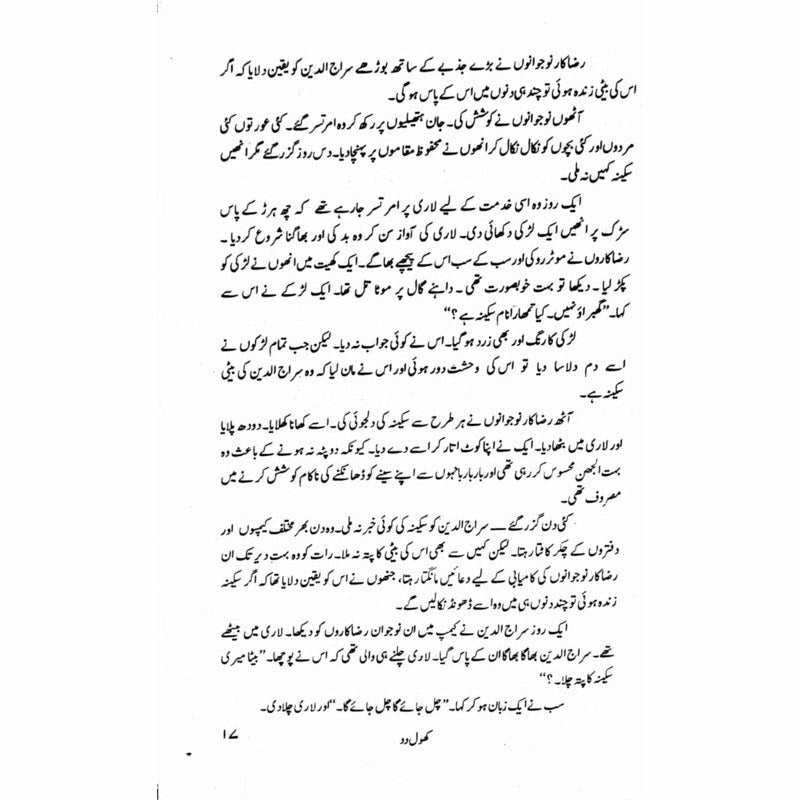 رضاکار نوجوانوں نے بڑے جذبے کے ساتھ بوڑھے سراج الدین کو یقین دلایا کہ اگر
اس کی بیٹی زندہ ہوئی تو چند ہی دنوں میں اس کے پاس ہوگی۔
آٹھوں نوجوانوں نے کوشش کی۔ جان ہتھیلیوں پر رکھ کر وہ امرتسر گئے۔ کئی عورتوں کئی
مردوں اور کئی بچوں کو نکال نکال کر انھوں نے محفوظ مقاموں پر پہنچا دیا۔ دس روز گزر گئے مگر انھیں
سکینہ کہیں نہ ملی۔
ایک روز وہ اسی خدمت کے لیے لاری پر امرتسر جا رہے تھے کہ چھ ہرڑ کے پاس
سڑک پر انھیں ایک لڑکی دکھائی دی۔ لاری کی آواز سن کر وہ بدکی اور بھاگنا شروع کر دیا۔
رضاکاروں نے موٹر روکی اور سب کے سب اس کے پیچھے بھاگے۔ ایک کھیت میں انھوں نے لڑکی کو
پکڑ لیا۔ دیکھا تو بہت خوبصورت تھی۔ داہنے گال پر موٹا تل تھا۔ ایک لڑکے نے اس سے
کہا۔ ”گھبراؤ نہیں۔ کیا تمھارا نام سکینہ ہے؟“
لڑکی کا رنگ اور بھی زرد ہو گیا۔ اس نے کوئی جواب نہ دیا۔ لیکن جب تمام لڑکوں نے
اسے دم دلاسا دیا تو اس کی وحشت دور ہوئی اور اس نے مان لیا کہ وہ سراج الدین کی بیٹی
سکینہ ہے۔
آٹھ رضاکار نوجوانوں نے ہر طرح سے سکینہ کی دلجوئی کی۔ اسے کھانا کھلایا۔ دودھ پلایا
اور لاری میں بٹھا دیا۔ ایک نے اپنا کوٹ اتار کر اسے دے دیا۔ کیونکہ دوپٹہ نہ ہونے کے باعث وہ
بہت الجھن محسوس کر رہی تھی اور بار بار بانہوں سے اپنے سینے کو ڈھانکنے کی ناکام کوشش کرنے میں
مصروف تھی۔
کئی دن گزر گئے — سراج الدین کو سکینہ کی کوئی خبر نہ ملی۔ وہ دن بھر مختلف کیمپوں اور
دفتروں کے چکر کاٹتا رہتا۔ لیکن کہیں سے بھی اس کی بیٹی کا پتہ نہ ملا۔ رات کو وہ بہت دیر تک ان
رضاکار نوجوانوں کی کامیابی کے لیے دعائیں مانگتا رہتا، جنھوں نے اس کو یقین دلایا تھا کہ اگر سکینہ
زندہ ہوئی تو چند دنوں ہی میں وہ اسے ڈھونڈ نکالیں گے۔
ایک روز سراج الدین نے کیمپ میں ان نوجوان رضاکاروں کو دیکھا۔ لاری میں بیٹھے
تھے۔ سراج الدین بھاگا بھاگا ان کے پاس گیا۔ لاری چلنے ہی والی تھی کہ اس نے پوچھا۔ ”بیٹا میری
سکینہ کا پتہ چلا۔؟“
سب نے ایک زبان ہو کر کہا۔ ”چل جائے گا چل جائے گا۔“ اور لاری چلا دی۔
کھول دو
۱۷